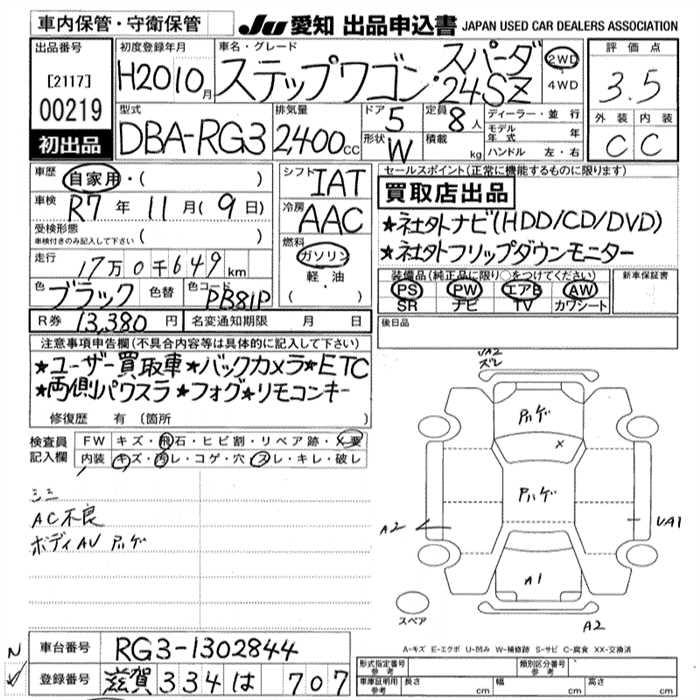 車内保管・守衛保管
JU 愛知 出品申込書 JAPAN USED CAR DEALERS ASSOCIATION
出品番号
[2117]
00219
初出品
初度登録年月
H20 10月
車名・グレード
ステップワゴン・スパーダ
24SZ
2WD
4WD
評価点
3.5
外装 内装
C C
型式
DBA-RG3
排気量
2,400cc
ドア 5
形状 W
定員 8人
積載 kg
ディーラー・並行
モデル年式 年
ハンドル 左・右
車歴 自家用・( )
車検 R7年 11月( 9日)
受検形態 ( )
車検付きのみ記入して下さい
走行 17万0千649km
色 ブラック 色替 色コード PB81P
R券 13,380円 名変通知期限 月 日
シフト IAT
冷房 AAC
燃料
ガソリン
軽油
( ・ )
セールスポイント(正常に機能するものに限ります)
買取店出品
★社外ナビ(HDD/CD/DVD)
★社外フリップダウンモニター
装備品(純正品に限り○をつけてください)
PS PW エアB AW
SR ナビ TV カワシート
新車保証書
後日品
注意事項申告欄(不具合内容等は具体的に記入して下さい)
★ユーザー買取車★バックカメラ★ETC
★両側パワスラ★フォグ★リモコンキー
修復歴 有(箇所 )
検査員
記入欄
FW キズ・飛石・ヒビ割・リペア跡・X要
内装 キズ・汚レ・コゲ・穴・スレ・キレ・破レ
シミ
AC不良
ボディAU アハゲ
UA2
ズレ
アハゲ
X
アハゲ
A2
UA1
A1
スペア
A2
A-キズ E-エクボ U-凹み W-補修跡 S-サビ C-腐食 XX-交換済
N
車台番号 RG3-1302844
登録番号 滋賀 334 は 707
形式指定番号 参考
類別区分番号 参考
車庫証明用 参考
長さ cm
幅 cm
高さ cm